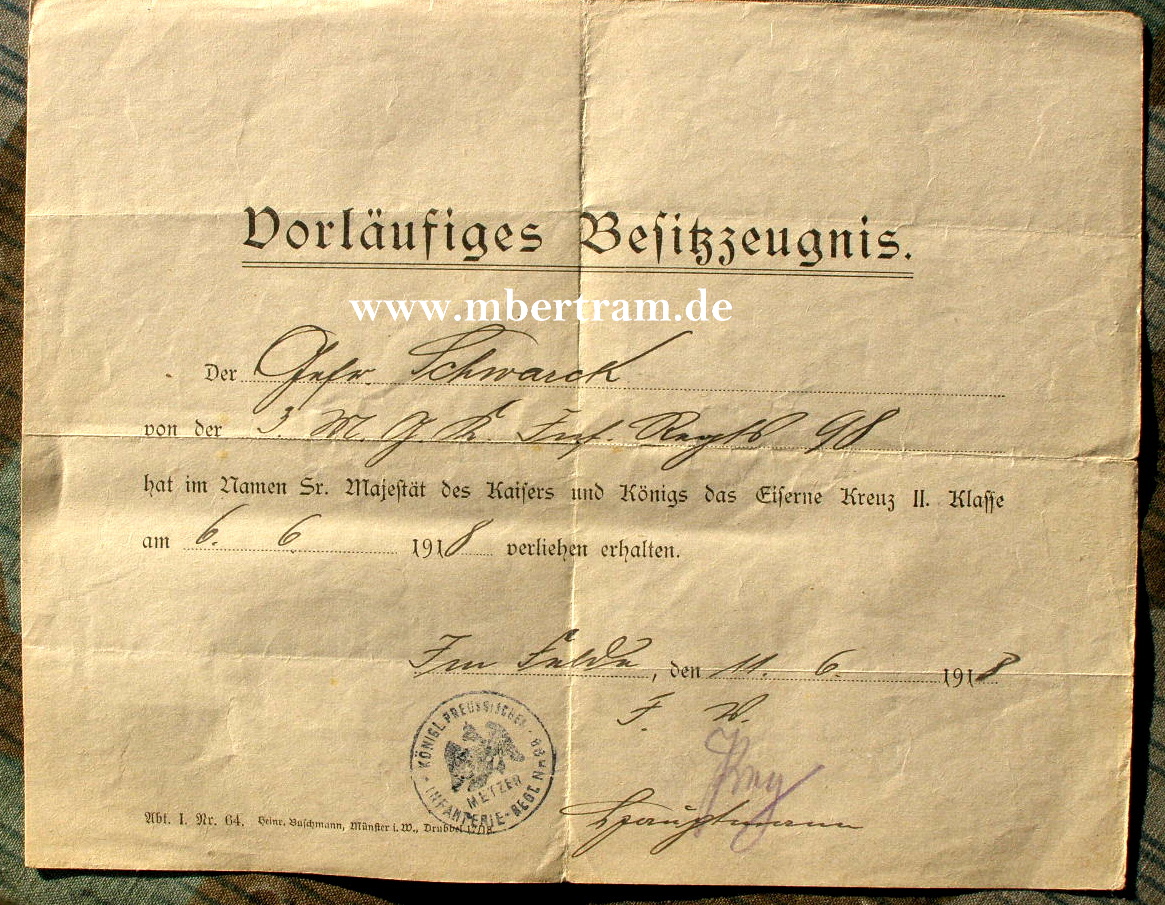 Vorläufiges Besitzzeugnis.
www.mbertram.de
Der Gefr. Schwarck
von der 3. M G K Inf. Regts 98
hat im Namen Sr. Majestät des Kaisers und Königs das Eiserne Kreuz II. Klasse
am 6. 6 1918 verliehen erhalten.
Im Felde, den 11. 6. 1918
F. W.
Hauptmann
KÖNIGL. PREUSSISCHES
METZER
INFANTERIE-REGT. Nr. 98
Abt. I. Nr. 64. Heinr. Buschmann, Münster i. W., Drubbel 17/18.